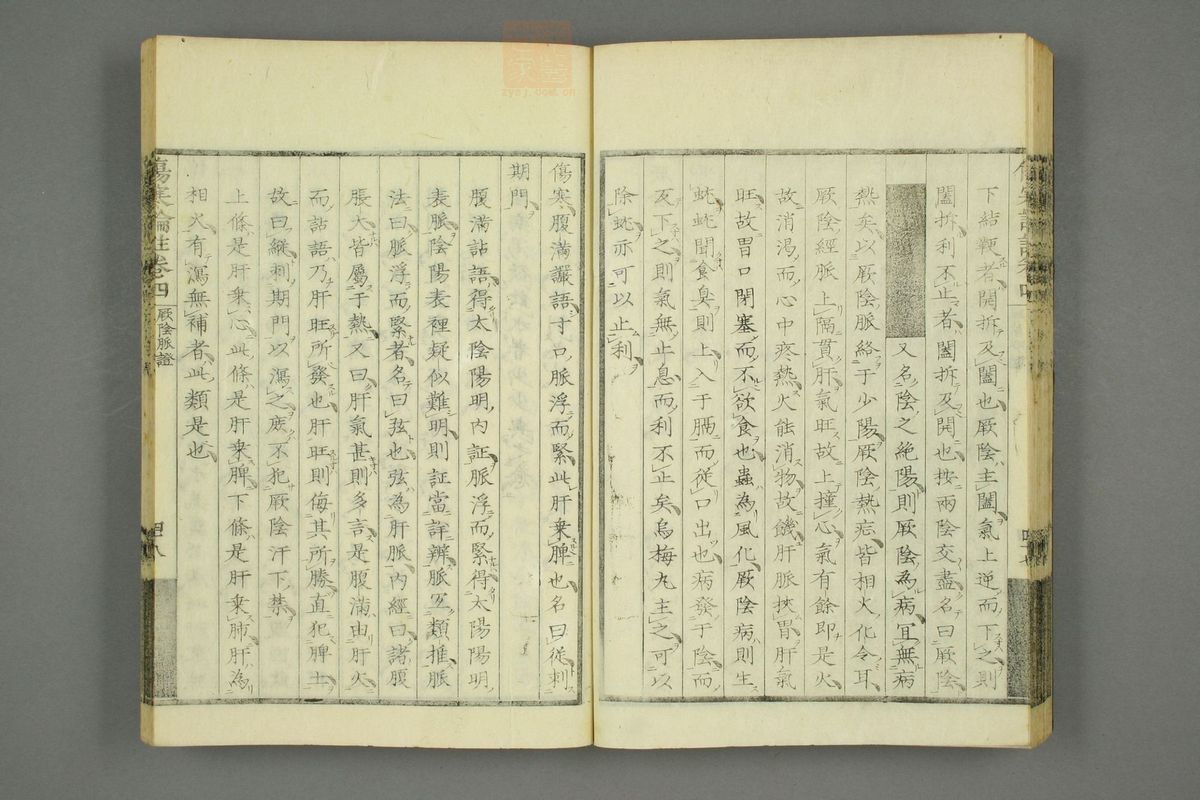 下結鞕者闔折及闔也厥陰主闔氣上逆而下之則
闔折利不止者闔折及開也按兩陰交盡名曰厥陰
又名陰之絶陽則厥陰為病宜無病
熱矣以厥陰脈絡于少陽厥陰熱症皆相火化令耳
厥陰經脈上膈貫肝氣旺故上撞心氣有餘即是火
故消渴而心中疼熱火能消物故饑肝脈挾胃肝氣
旺故胃口閉塞而不欲食也蟲為風化厥陰病則生
蚘蚘聞食臭則上入于膈而從口出也病發于陰而
反下之則氣無止息而利不止矣烏梅丸主之可以
除蚘亦可以止利
傷寒腹滿讝語寸口脈浮而緊此肝乗脾也名曰從刺
期門
腹滿詀語得太陰陽明內証脈浮而緊得太陽陽明
表脈陰陽表裡疑似難明則証當詳辨脈宜類推脈
法曰脈浮而緊者名曰弦也弦為肝脈內經曰諸腹
脹大皆屬于熱又曰肝氣甚則多言是腹滿由肝火
而詀語乃肝旺所發也肝旺則侮其所勝直犯脾土
故曰縱刺期門以瀉之庶不犯厥陰汗下禁
上條是肝乗心此條是肝乗脾下條是肝乗肺肝為
相火有瀉無補者此類是也
傷寒論註卷四 厥陰脈證 四八
zysj.com.cn